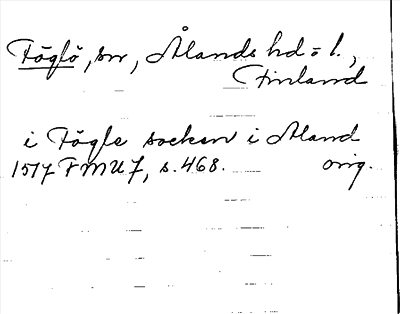 Föglö, sn, Ålands hd = l.,
Finland
i Fögle socken i Åland
1517 FMU 7, s. 468. orig.